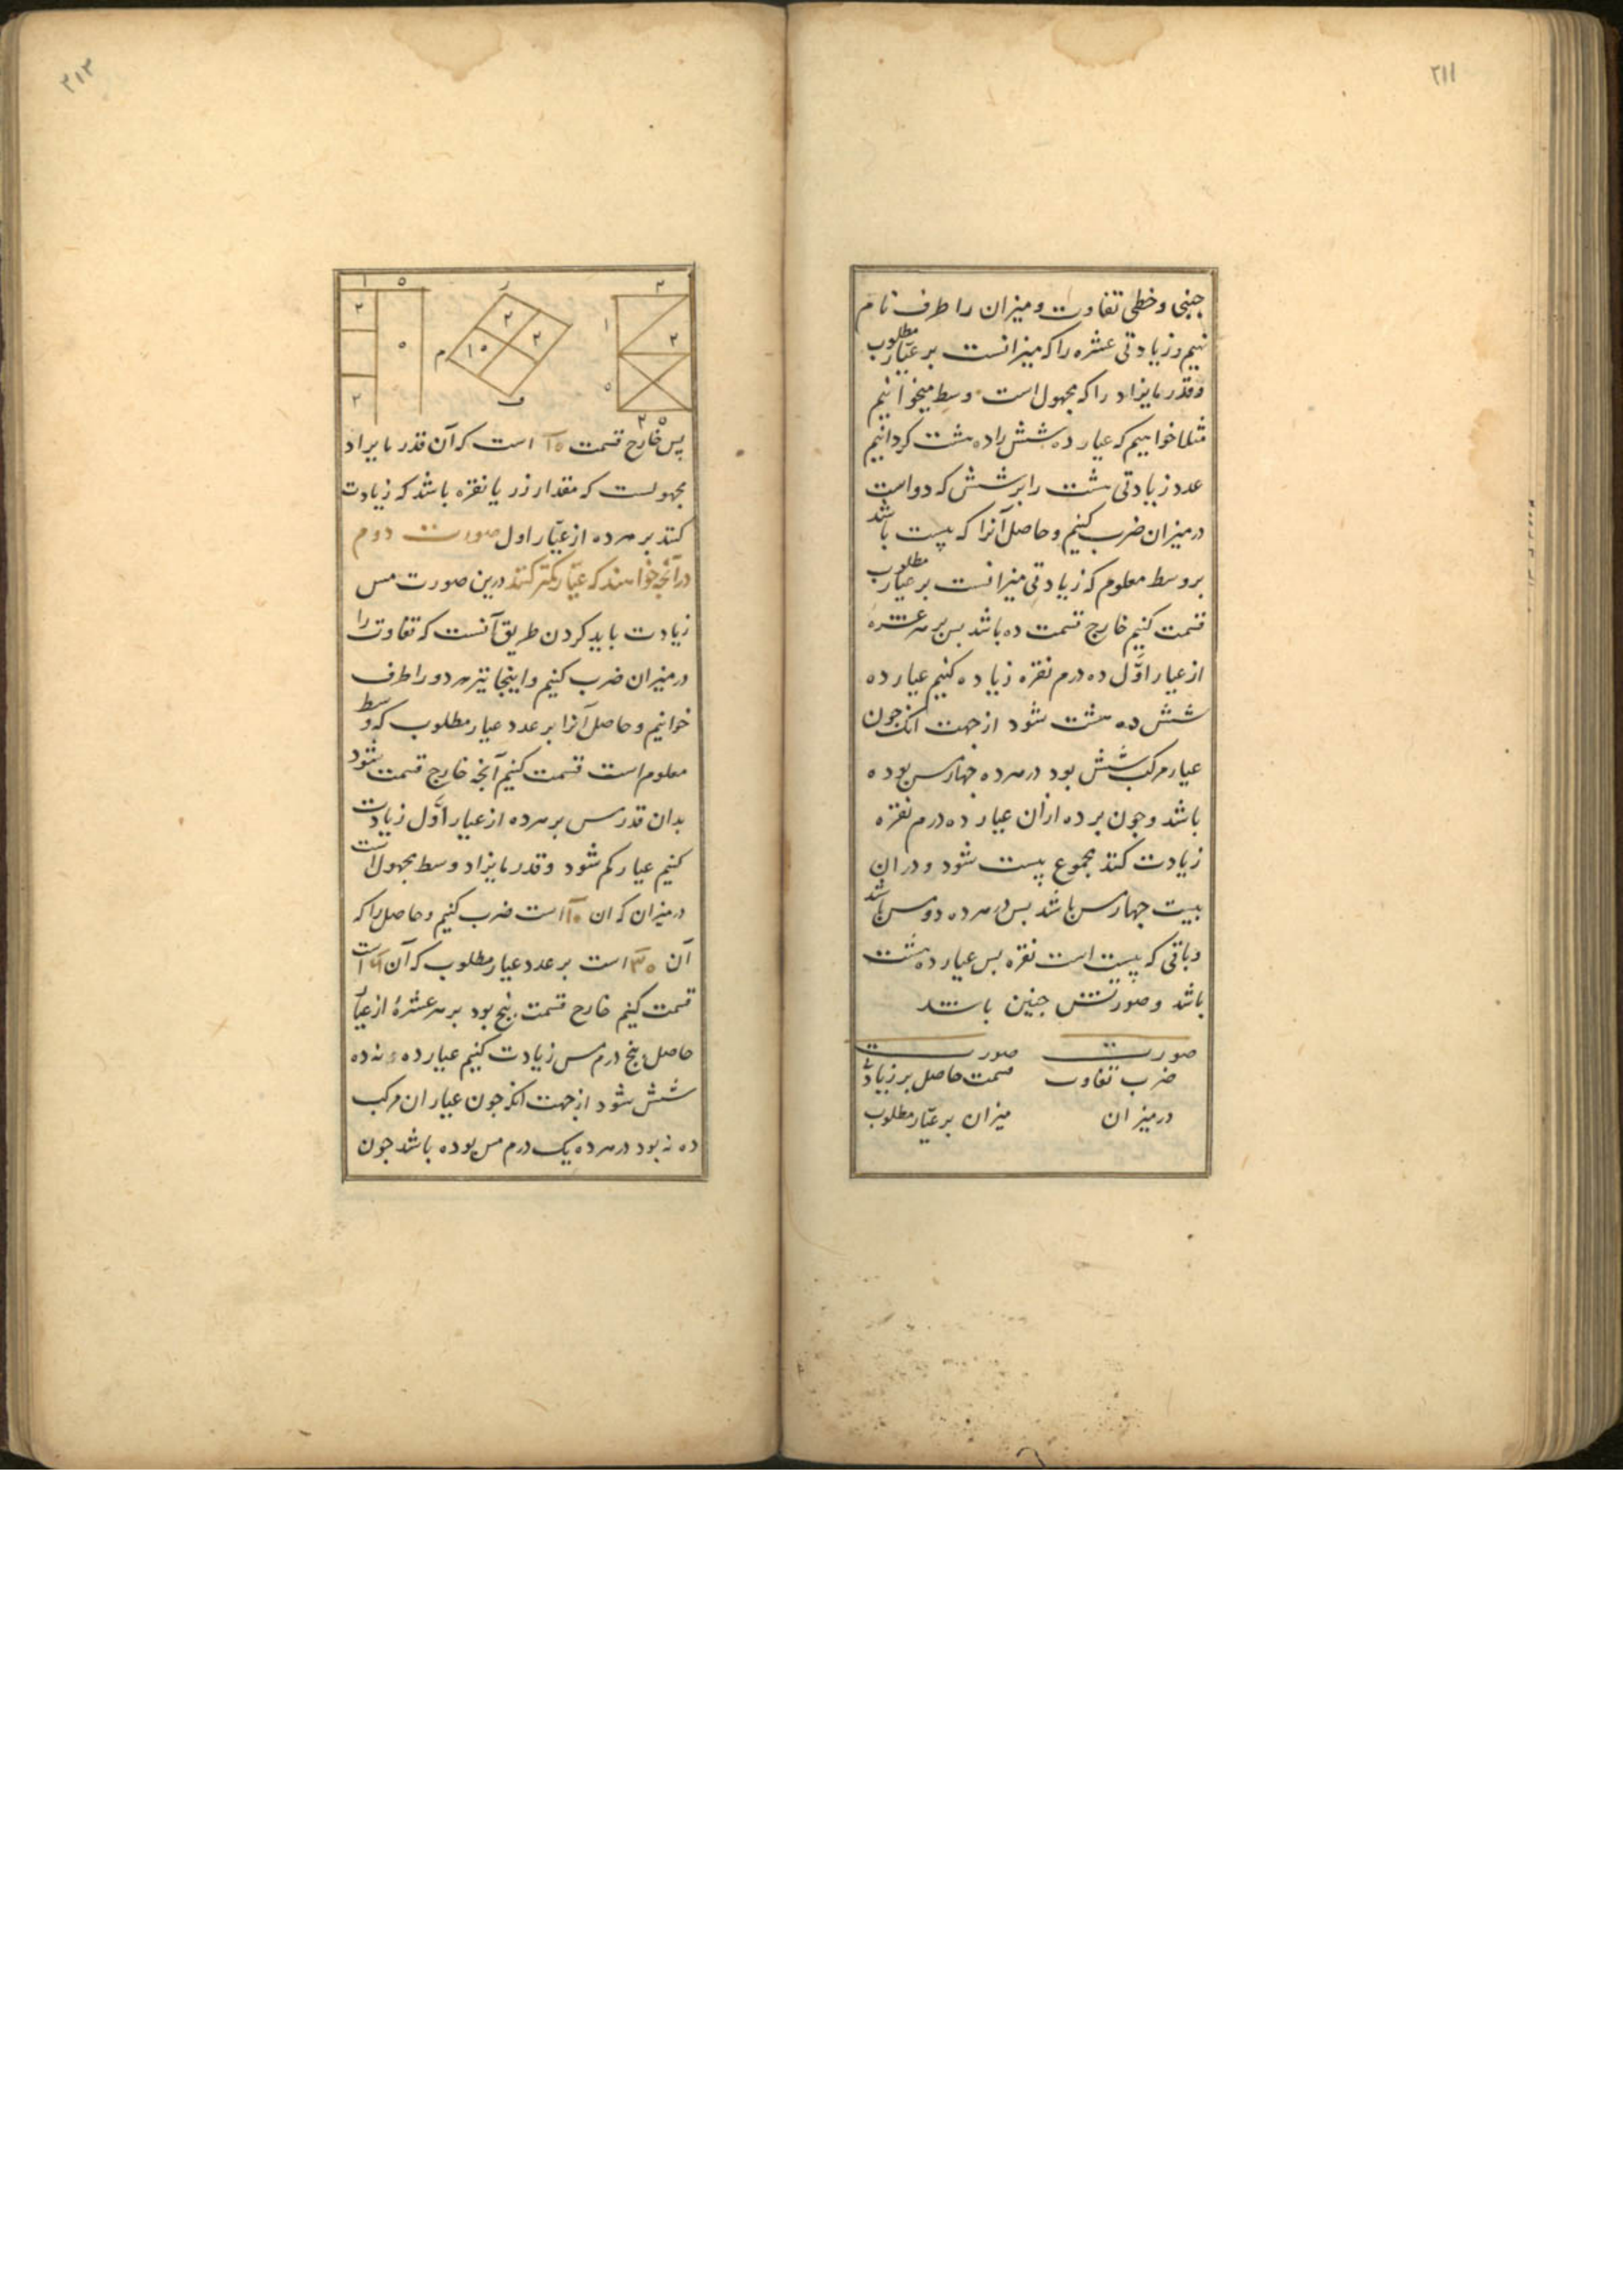 ۲۱۱
جنبی و خطی تفاوت و میزان را طرف نام
نهیم و زیادتی عشره را که میزانست بر عیار مطلوب
و قدر مایزاد را که مجهول است وسط میخوانیم
مثلا خواهیم که عیار ده شش را ده هشت کردانیم
عدد زیادتی هشت را بر شش که دو است
در میزان ضرب کنیم و حاصل آنرا که بیست باشد
بر وسط معلوم که زیادتی میزانست بر عیار مطلوب
قسمت کنیم خارج قسمت ده باشد بس بر هر عشره
از عیار اول ده درم نقره زیاده کنیم عیار ده
شش ده هشت شود از جهت انک جون
عیار مرکب شش بود در هر ده جهار مس بوده
باشد و جون بر ده ازان عیار ده درم نقره
زیادت کند مجموع بیست شود و در ان
بیست جهار مس باشد بس در هر ده دو مس باشد
و باقی که بیست است نقره بس عیار ده هشت
باشد و صورتش جنین باشد
صورت صورت
ضرب تفاوت قسمت حاصل بر زیادتی
در میزان میزان بر عیار مطلوب
۲۱۳
۲ ۱ ۲ ۵
۲ ۲ ۱۰ م
۱ ۵ ۲ ۵ ۲
پس خارج قسمت ۱۰ است که آن قدر مایزاد
مجهولست که مقدار زر یا نقره باشد که زیادت
کند بر هر ده از عیار اول صورت دوم
در آنجه خواهند که عیار کمتر کنند درین صورت مس
زیادت باید کردن طریق آنست که تفاوت را
در میزان ضرب کنیم و اینجا نیز هر دو را طرف
خوانیم و حاصل آنرا بر عدد عیار مطلوب که وسط
معلوم است قسمت کنیم آنجه خارج قسمت شود
بدان قدر مس بر هر ده از عیار اول زیادت
کنیم عیار کم شود و قدر مایزاد وسط مجهول است
در میزان که ان ۱۰ است ضرب کنیم و حاصل را که
آن ۳۰ است بر عدد عیار مطلوب که آن ۶ است
قسمت کنیم خارج قسمت بنج بود بر هر عشرهٔ از عیار
حاصل بنج درم مس زیادت کنیم عیار ده نه ده
شش شود از جهت انکه جون عیار ان مرکب
ده نه بود در هر ده یک درم مس بوده باشد جون